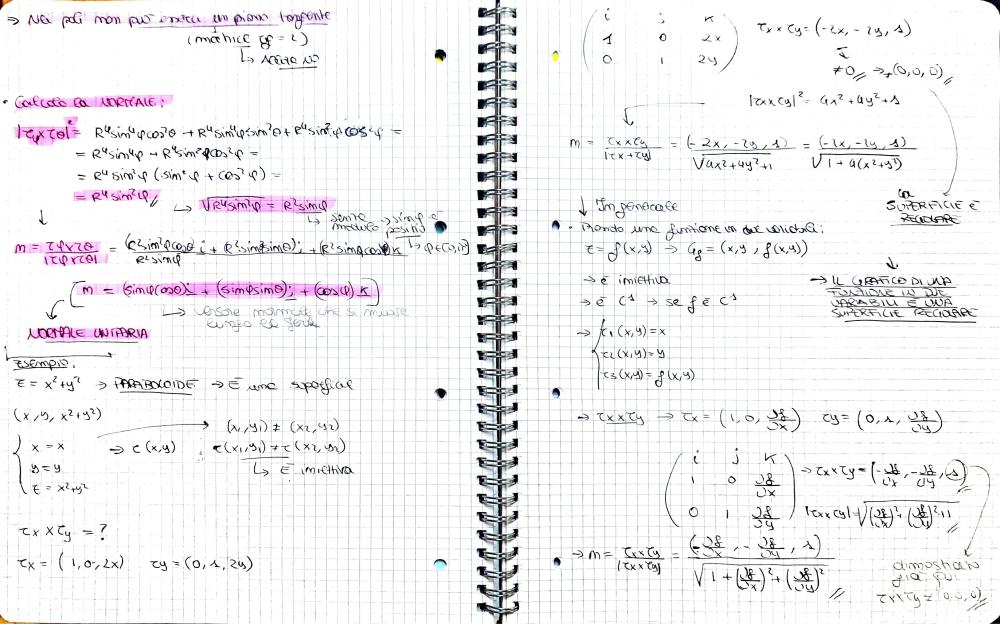 → Nei poli non può esserci un piano tangente
(matrice rg = 2)
↳ NORMALE NO
• Calcolo la NORMALE:
|τφ×τθ|² = R⁴sin⁴φcos²θ + R⁴sin⁴φsin²θ + R⁴sin²φcos²φ =
= R⁴sin⁴φ + R⁴sin²φcos²φ =
= R⁴sin²φ (sin²φ + cos²φ) =
= R⁴sin²φ // ↳ √R⁴sin²φ = R²sinφ
↳ senza modulo → sinφ è positivo
↳ φ∈(0,π)
m = τφ×τθ / |τφ×τθ| = (R²sin²φcosθ)i + (R²sin²φsinθ)j + (R²sinφcosφ)k / R²sinφ
[m = (sinφcosθ)i + (sinφsinθ)j + (cosφ)k]
↳ versore normale che si muove lungo la sfera
NORMALE UNITARIA
ESEMPIO:
z = x²+y² → PARABOLOIDE → È una superficie
(x, y, x²+y²)
x = x
y = y
z = x²+y²
→ τ(x,y)
(x1,y1) ≠ (x2,y2)
τ(x1,y1) ≠ τ(x2,y2)
↳ È iniettiva
τx × τy = ?
τx = (1,0,2x) τy = (0,1,2y)
i j k
1 0 2x
0 1 2y
τx×τy = (-2x, -2y, 1)
≠0 → ≠(0,0,0) //
|τx×τy|² = 4x²+4y²+1
m = τx×τy / |τx×τy| = (-2x, -2y, 1) / √4x²+4y²+1 = (-2x, -2y, 1) / √1+4(x²+y²)
La SUPERFICIE È REGOLARE
↓ In generale
• Prendo una funzione in due variabili:
z = f(x,y) → Gf = (x,y,f(x,y))
→ è iniettiva
→ è C¹ → se f è C¹
→ IL GRAFICO DI UNA FUNZIONE IN DUE VARIABILI È UNA SUPERFICIE REGOLARE
→ τ1(x,y) = x
τ2(x,y) = y
τ3(x,y) = f(x,y)
→ τx×τy → τx = (1, 0, ∂f/∂x) τy = (0, 1, ∂f/∂y)
i j k
1 0 ∂f/∂x
0 1 ∂f/∂y
→ τx×τy = (-∂f/∂x, -∂f/∂y, 1) //
|τx×τy| = √(∂f/∂x)²+(∂f/∂y)²+1 //
→ m = τx×τy / |τx×τy| = (-∂f/∂x, -∂f/∂y, 1) / √1+(∂f/∂x)²+(∂f/∂y)² //
dimostrato già qui
τx×τy ≠ (0,0,0) //